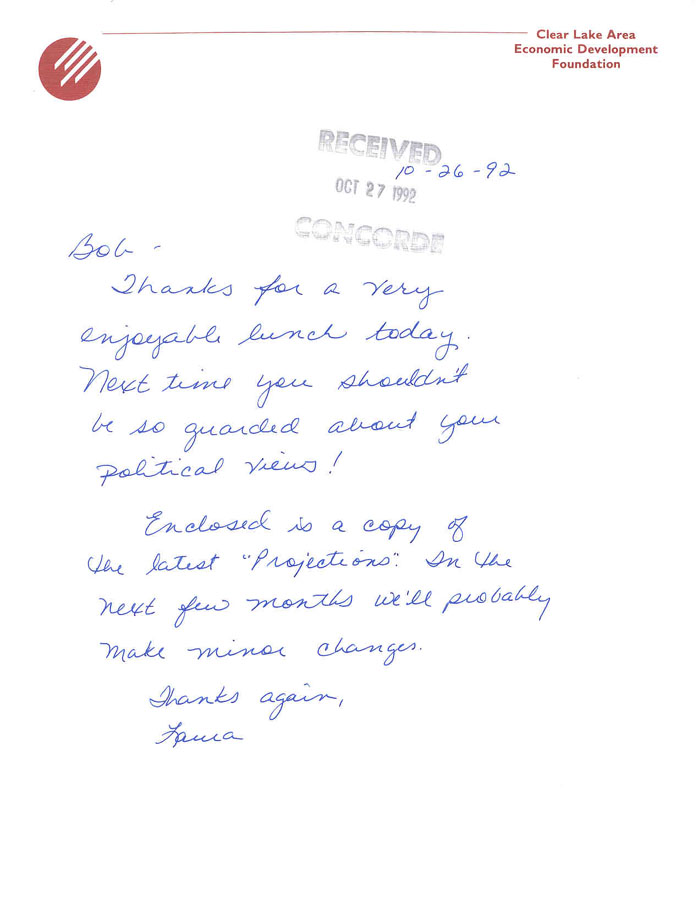 Clear Lake Area
Economic Development
Foundation
RECEIVED
10-26-92
OCT 27 1992
CONCORDE
Bob -
Thanks for a very
enjoyable lunch today.
Next time you shouldn't
be so guarded about your
political views!
Enclosed is a copy of
the latest "Projections". In the
next few months we'll probably
make minor changes.
Thanks again,